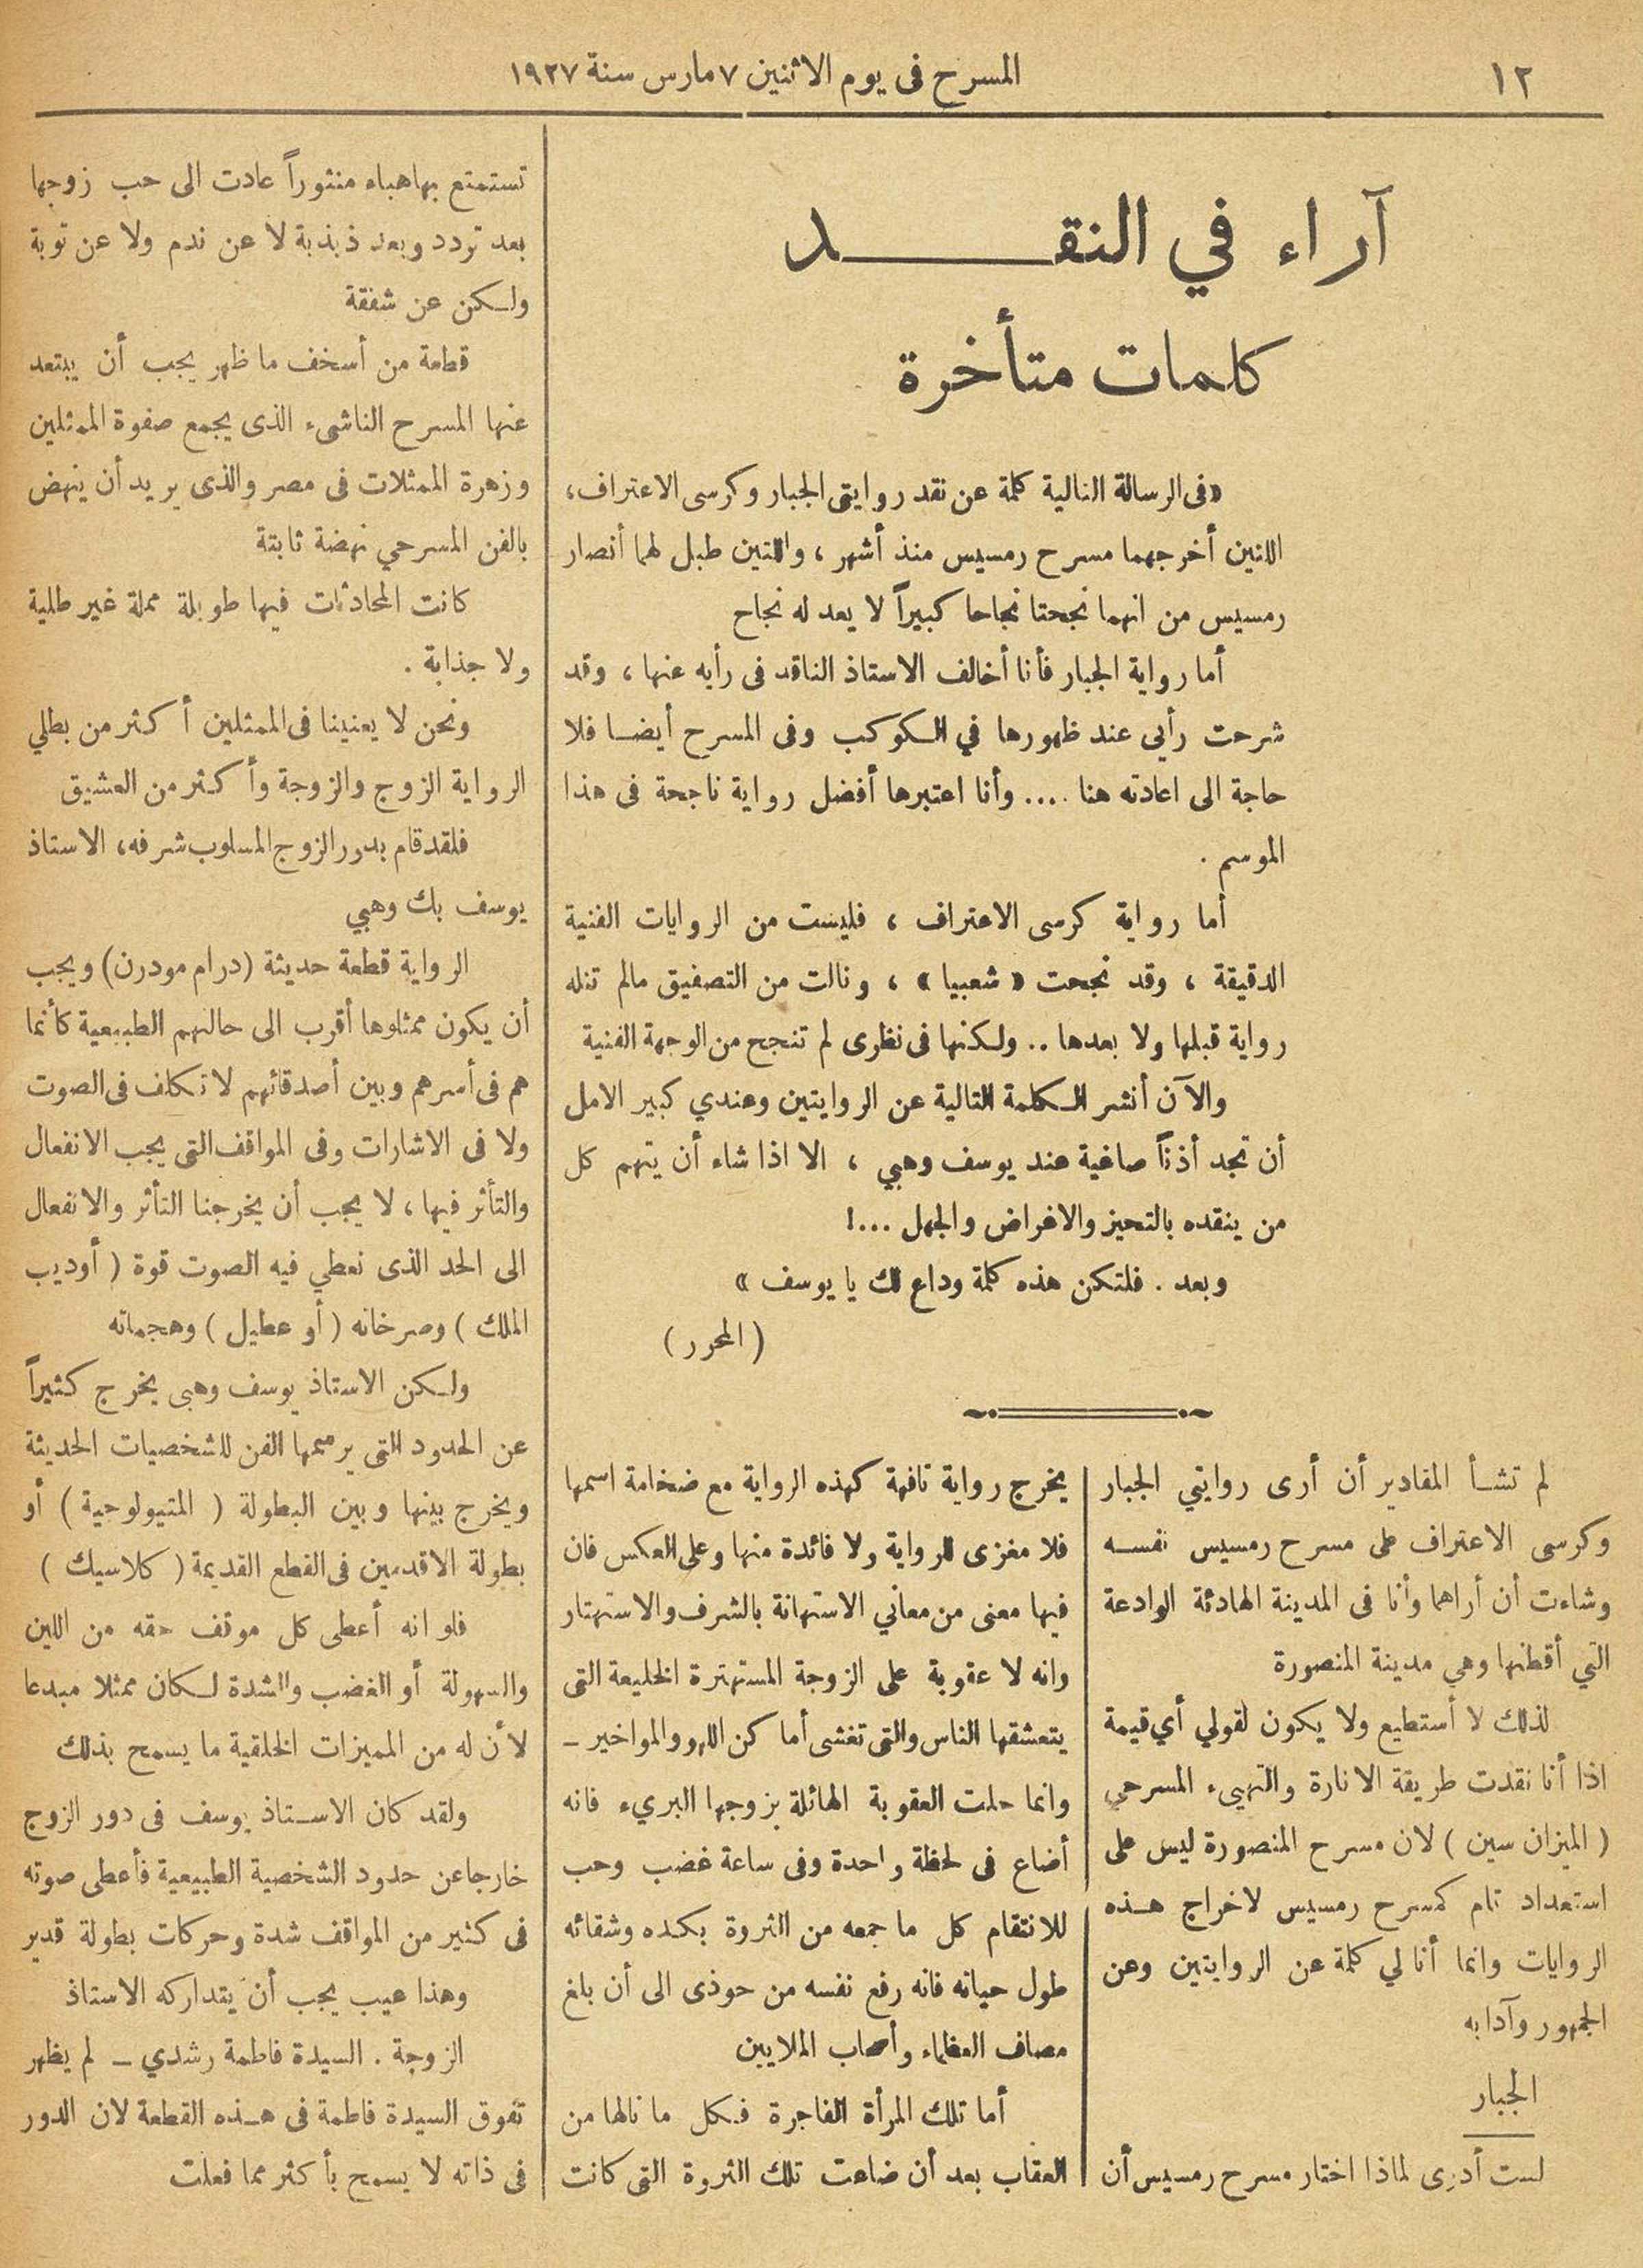 ١٢
المسرح فى يوم الاثنين ٧ مارس سنة ١٩٢٧
آراء في النقـــد
كلمات متأخرة
«فى الرسالة التالية كلمة عن نقد روايتى الجبار وكرسى الاعتراف،
اللتين أخرجهما مسرح رمسيس منذ أشهر ، واللتين طبل لهما أنصار
رمسيس من انهما نجحتا نجاحا كبيراً لا يعد له نجاح
أما رواية الجبار فأنا أخالف الاستاذ الناقد فى رأيه عنها ، وقد
شرحت رأيى عند ظهورها في الكوكب وفى المسرح أيضا فلا
حاجة الى اعادته هنا .... وأنا اعتبرها أفضل رواية ناجحة فى هذا
الموسم .
أما رواية كرسى الاعتراف ، فليست من الروايات الفنية
الدقيقة ، وقد نجحت « شعبيا » ، ونالت من التصفيق مالم تنله
رواية قبلها ولا بعدها .. ولكنها فى نظرى لم تنجح من الوجهة الفنية
والآن أنشر الكلمة التالية عن الروايتين وعندي كبير الامل
أن تجد أذناً صاغية عند يوسف وهبي ، الا اذا شاء أن يتهم كل
من ينقده بالتحيز والاغراض والجهل ...!
وبعد . فلتكن هذه كلمة وداع لك يا يوسف »
( المحرر )
لم تشأ المقادير أن أرى روايتي الجبار
وكرسى الاعتراف على مسرح رمسيس نفسه
وشاءت أن أراهما وأنا فى المدينة الهادئة الوادعة
التي أقطنها وهي مدينة المنصورة
لذلك لا أستطيع ولا يكون لقولي أي قيمة
اذا أنا نقدت طريقة الانارة والتهيىء المسرحي
( الميزان سين ) لان مسرح المنصورة ليس على
استعداد تام كمسرح رمسيس لاخراج هذه
الروايات وانما أنا لي كلمة عن الروايتين وعن
الجمهور وآدابه
الجبار
لست أدرى لماذا اختار مسرح رمسيس أن
يخرج رواية تافهة كهذه الرواية مع ضخامة اسمها
فلا مغزى للرواية ولا فائدة منها وعلى العكس فان
فيها معنى من معاني الاستهانة بالشرف والاستهتار
وانه لا عقوبة على الزوجة المستهترة الخليعة التى
يتعشقها الناس والتى تغشى أماكن اللهو والمواخير ـ
وانما حلت العقوبة الهائلة بزوجها البريء فانه
أضاع فى لحظة واحدة وفى ساعة غضب وحب
للانتقام كل ما جمعه من الثروة بكده وشقائه
طول حياته فانه رفع نفسه من حوذى الى أن بلغ
مصاف العظماء وأصحاب الملايين
أما تلك المرأة الفاجرة فكل ما نالها من
العقاب بعد أن ضاعت تلك الثروة التى كانت
تستمتع بها هباء منثوراً عادت الى حب زوجها
بعد تردد وبعد ذبذبة لا عن ندم ولا عن توبة
ولكن عن شفقة
قطعة من أسخف ما ظهر يجب أن يبتعد
عنها المسرح الناشىء الذى يجمع صفوة الممثلين
وزهرة الممثلات فى مصر والذى يريد أن ينهض
بالفن المسرحي نهضة ثابتة
كانت المحادثات فيها طويلة مملة غير طلية
ولا جذابة .
ونحن لا يعنينا فى الممثلين أكثر من بطلي
الرواية الزوج والزوجة وأكثر من العشيق
فلقد قام بدور الزوج المسلوب شرفه، الاستاذ
يوسف بك وهبي
الرواية قطعة حديثة (درام مودرن) ويجب
أن يكون ممثلوها أقرب الى حالتهم الطبيعية كأنما
هم فى أسرهم وبين أصدقائهم لا تكلف فى الصوت
ولا فى الاشارات وفى المواقف التى يجب الانفعال
والتأثر فيها ، لا يجب أن يخرجنا التأثر والانفعال
الى الحد الذى نعطي فيه الصوت قوة ( أوديب
الملك ) وصرخاته ( أو عطيل ) وهجماته
ولكن الاستاذ يوسف وهبى يخرج كثيراً
عن الحدود التى يرسمها الفن للشخصيات الحديثة
ويخرج بينها وبين البطولة ( المتيولوجية ) أو
بطولة الاقدمين فى القطع القديمة ( كلاسيك )
فلو انه أعطى كل موقف حقه من اللين
والسهولة أو الغضب والشدة لكان ممثلا مبدعا
لأن له من المميزات الخلقية ما يسمح بذلك
ولقد كان الاستاذ يوسف فى دور الزوج
خارجا عن حدود الشخصية الطبيعية فأعطى صوته
فى كثير من المواقف شدة وحركات بطولة قدير
وهذا عيب يجب أن يتداركه الاستاذ
الزوجة . السيدة فاطمة رشدي ـ لم يظهر
تفوق السيدة فاطمة فى هذه القطعة لان الدور
فى ذاته لا يسمح بأكثر مما فعلت